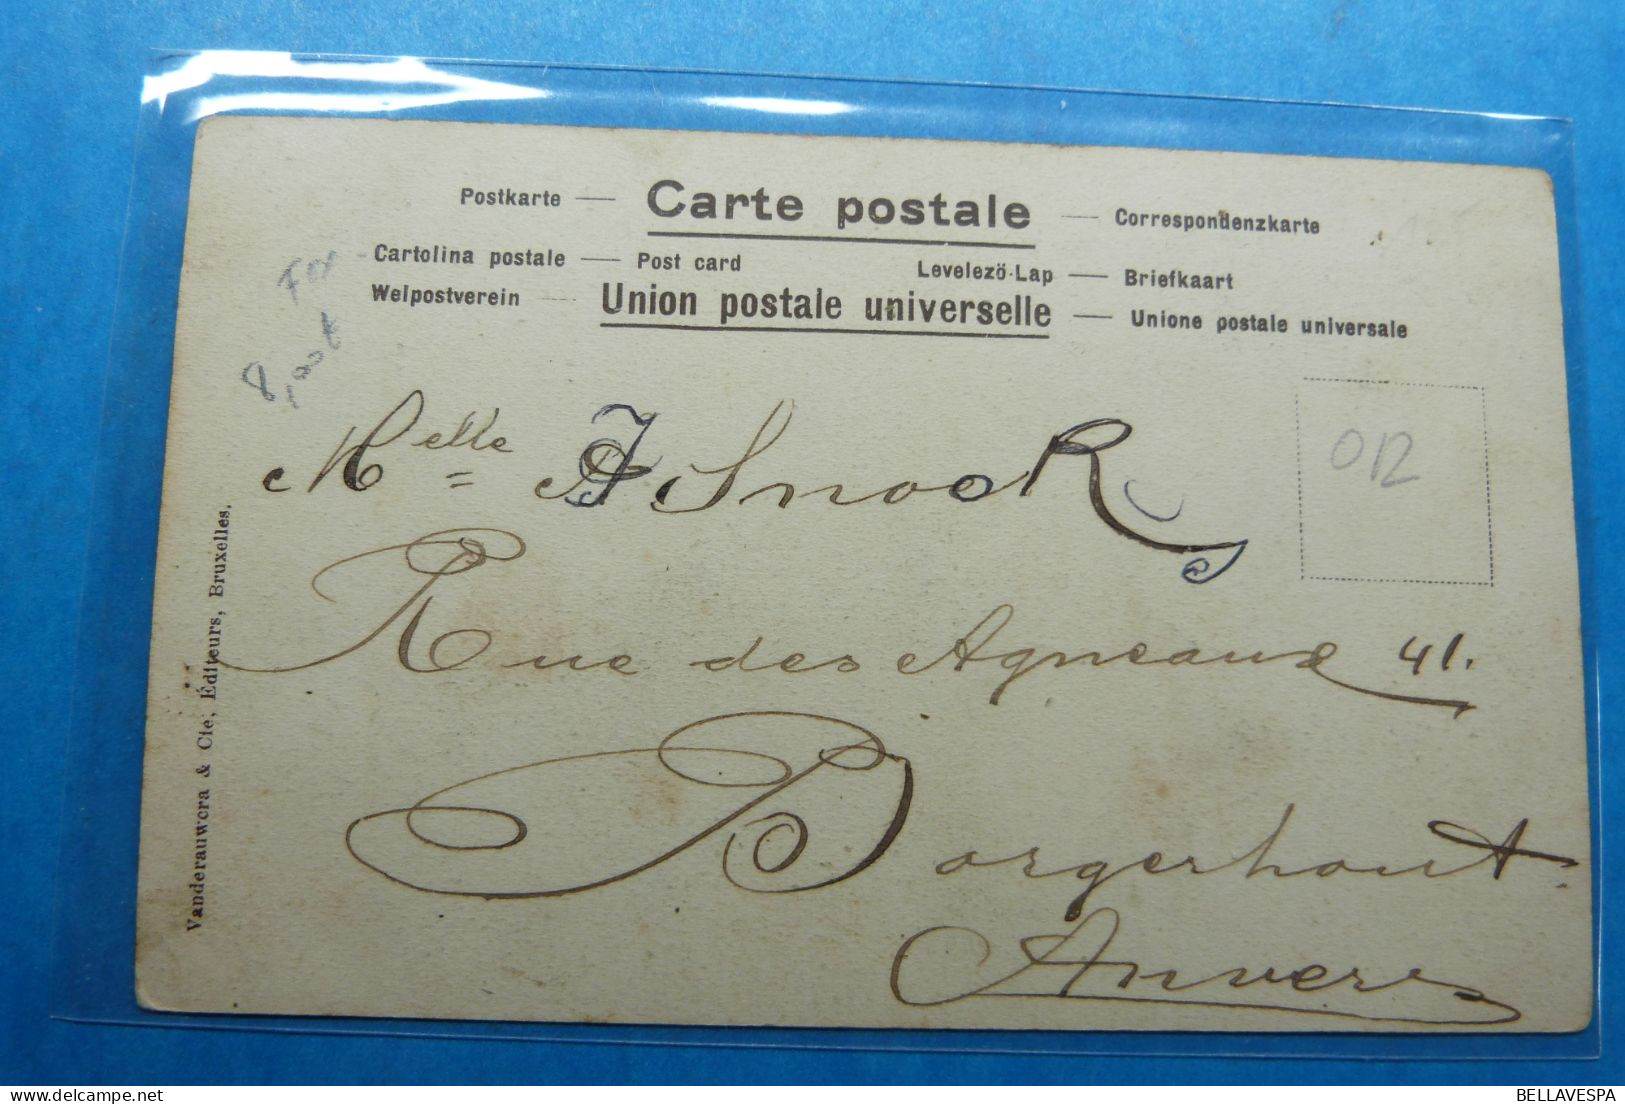 Postkarte — Carte postale — Correspondenzkarte
Cartolina postale — Post card Levelezö-Lap — Briefkaart
Welpostverein — Union postale universelle — Unione postale universale
012
Melle J Snoek
Rue des Agneaux 41.
Borgerhout
Anvers
Vanderauwera & Cie, Éditeurs, Bruxelles.
BELLAVESPA